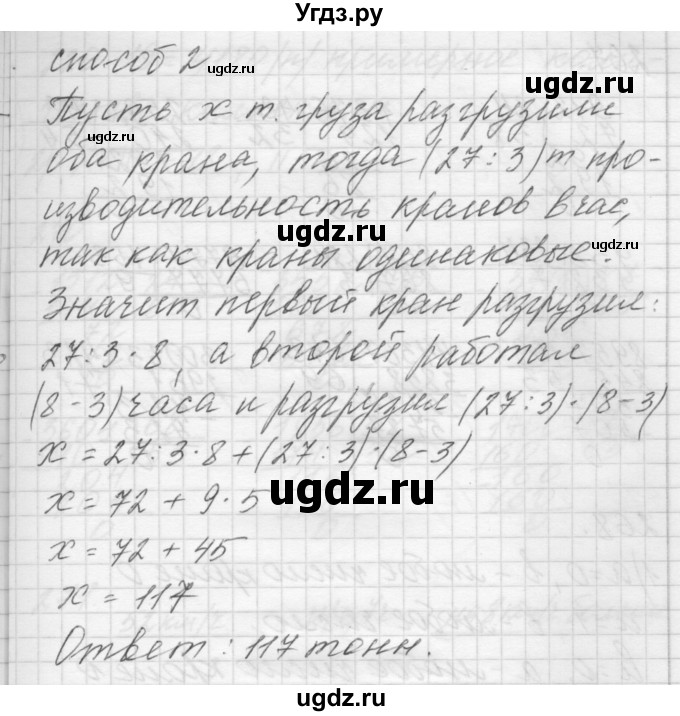 Угдз.ру
способ 2
ugdz.ru
ugdz.ru
Пусть x т. груза разгрузили
ugdz.ru
оба крана, тогда (27:3) т про-
изводительность кранов в час,
ugdz.ru
ugdz.ru
так как краны одинаковые.
Значит первый кран разгрузил:
27:3·8, а второй работал
ugdz.ru
(8-3) часа и разгрузил (27:3)·(8-3)
x = 27:3·8+(27:3)·(8-3)
ugdz.ru
x = 72 + 9·5
x = 72 + 45
x = 117
ugdz.ru
Ответ: 117 тонн.
ugdz.ru